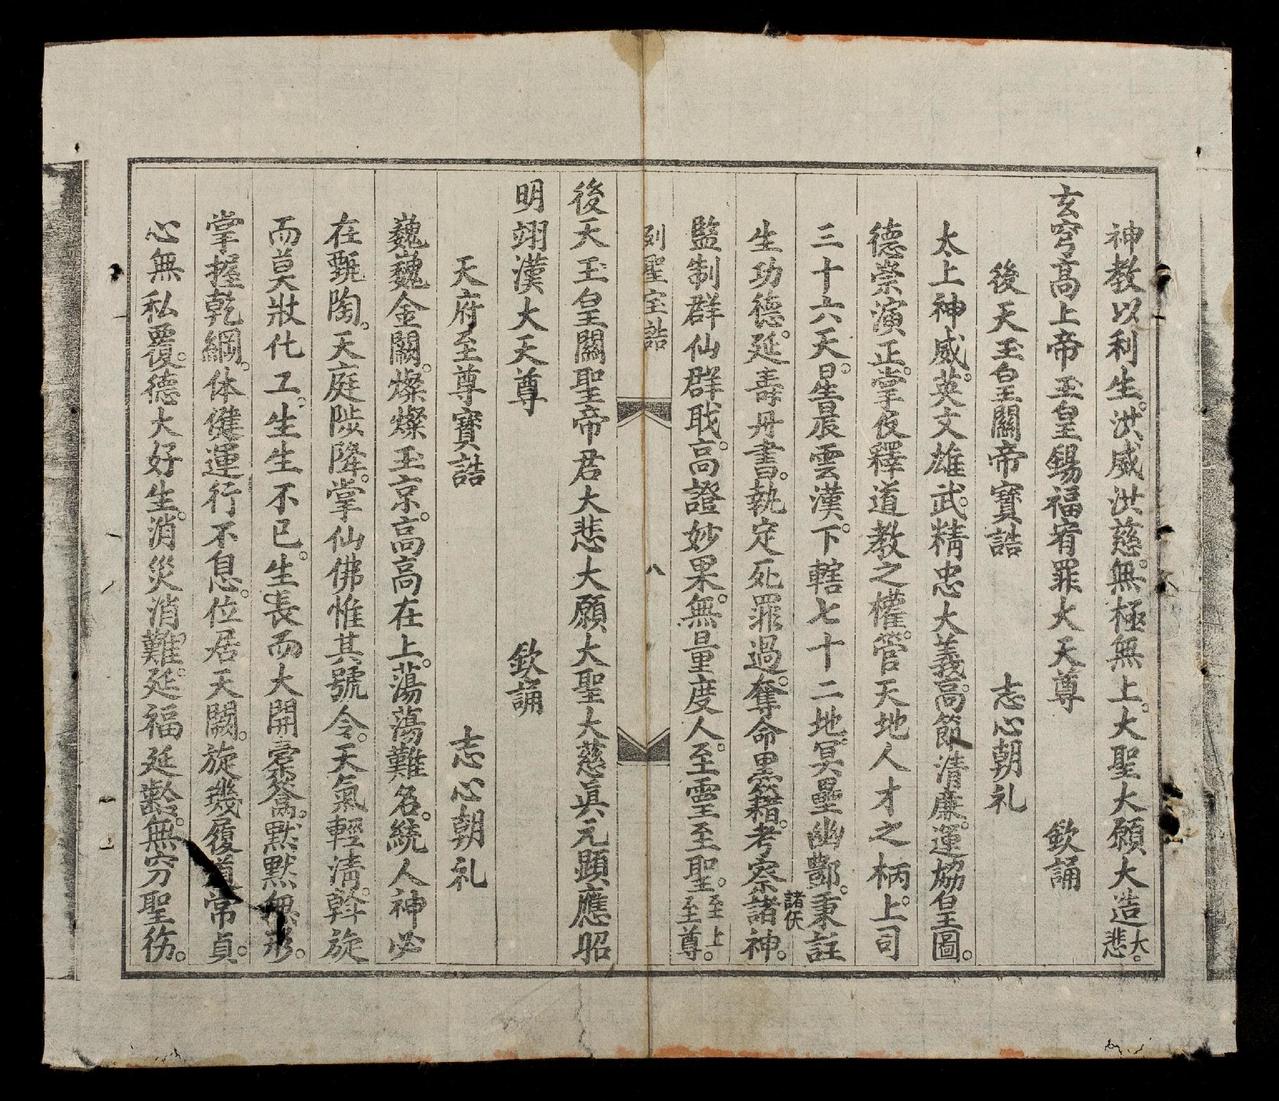 神教以利生。洪威洪慈。無極無上。大聖大願大造大悲。
玄穹高上帝玉皇錫福宥罪大天尊 欽誦
後天玉皇關帝寶誥 志心朝礼
太上神威。英文雄武。精忠大義。高節清廉。運協皇圖。
德崇演正。掌仅釋道教之權。管天地人才之柄。上司
三十六天。星辰雲漢。下轄七十二地。冥壘幽酆。秉註
生功德。延壽丹書。執定死罪過。奪命黑籍。考察諸仸諸神。
監制群仙群职。高證妙果。無量度人。至靈至聖。至上至尊。
列聖宝誥
八
後天玉皇關聖帝君大悲大願大聖大慈眞元顯應昭
明翊漢大天尊
欽誦
天府至尊寶誥 志心朝礼
巍巍金闕。燦燦玉京。高高在上。蕩蕩難名。統人神必
在甄陶。天庭陟降。掌仙佛惟其號令。天氣輕清。斡旋
而莫壯化工。生生不已。生長而大開橐籥。默默無形。
掌握乾綱。体健運行不息。位居天闕。旋璣履道常貞。
心無私覆。德大好生。消災消難。延福延齡。無穷聖伤。